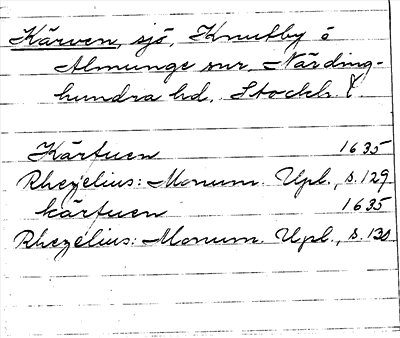 Kärven, sjö, Knutby o
Almunge snr, Närding-
hundra hd, Stockh. l
Kärtuen 1635
Rhezelius: Monum. Upl., s. 129
kärtuen 1635
Rhezelius: Monum. Upl., s. 130